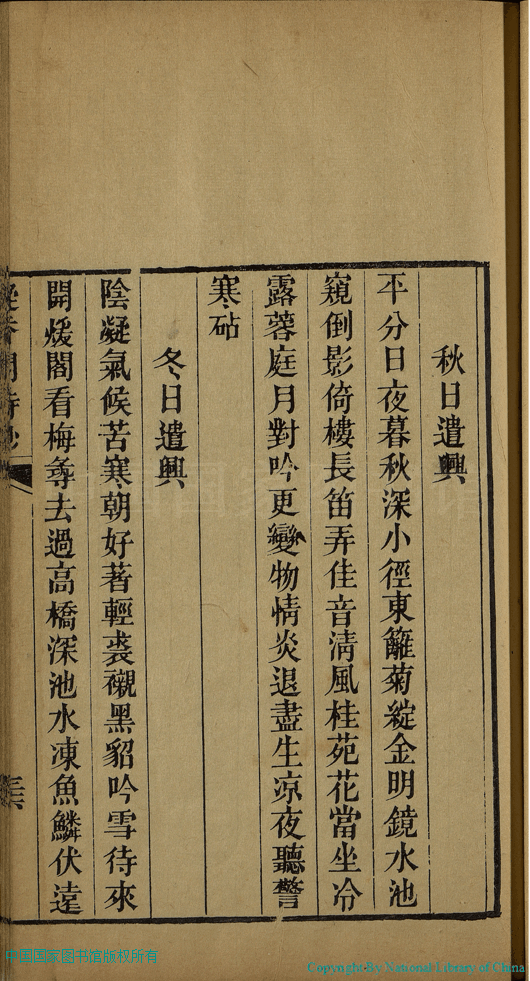 秋日遣興
平分日夜暮秋深小徑東籬菊綻金明鏡水池
窺倒影倚樓長笛弄佳音淸風桂苑花當坐冷
露蓉庭月對吟更變物情炎退盡生凉夜聽警
寒砧
冬日遣興
陰凝氣候苦寒朝好著輕裘襯黑貂吟雪待來
開煖閣看梅尊去過高橋深池水凍魚鱗伏遠
中国国家图书馆版权所有
Copyright By National Library of China